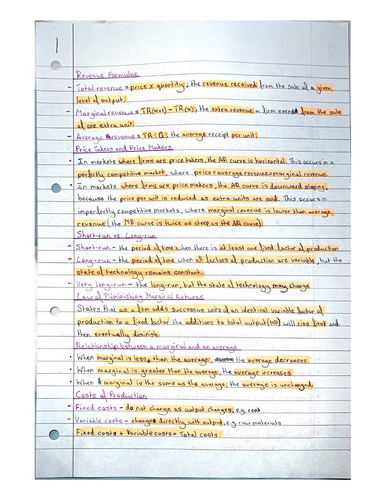 1
Revenue Formulas
- Total revenue = price x quantity; the revenue received from the sale of a given
level of output.
- Marginal revenue = TR(n+1) - TR(n); the extra revenue a firm earns from the sale
of one extra unit
- Average revenue = TR ÷ Q; the average receipt per unit
Price Takers and Price Makers
• In markets where firms are price takers, the AR curve is horizontal. This occurs in a
perfectly competitive market, where price = average revenue = marginal revenue
• In markets where firms are price makers, the AR curve is downward sloping,
because the price per unit is reduced as extra units are sold. This occurs in
imperfectly competitive markets, where marginal revenue is lower than average
revenue (the MR curve is twice as steep as the AR curve)
Short-run vs Long-run
- Short-run - the period of time when there is at least one fixed factor of production
- Long-run - the period of time when all factors of production are variable, but the
state of technology remains constant
- Very long-run - the long-run, but the state of technology may change
Law of Diminishing Marginal Returns
- States that as a firm adds successive units of an identical variable factor of
production to a fixed factor the additions to total output (MP) will rise first and
then eventually diminish
Relationship between a marginal and an average
• When marginal is less than the average, the average decreases
• When marginal is greater than the average, the average increases
• When marginal is the same as the average, the average is unchanged
Costs of Production
- Fixed costs - do not change as output changes, e.g. rent
- Variable costs - change directly with output, e.g. raw materials
- Fixed costs + Variable costs = Total costs